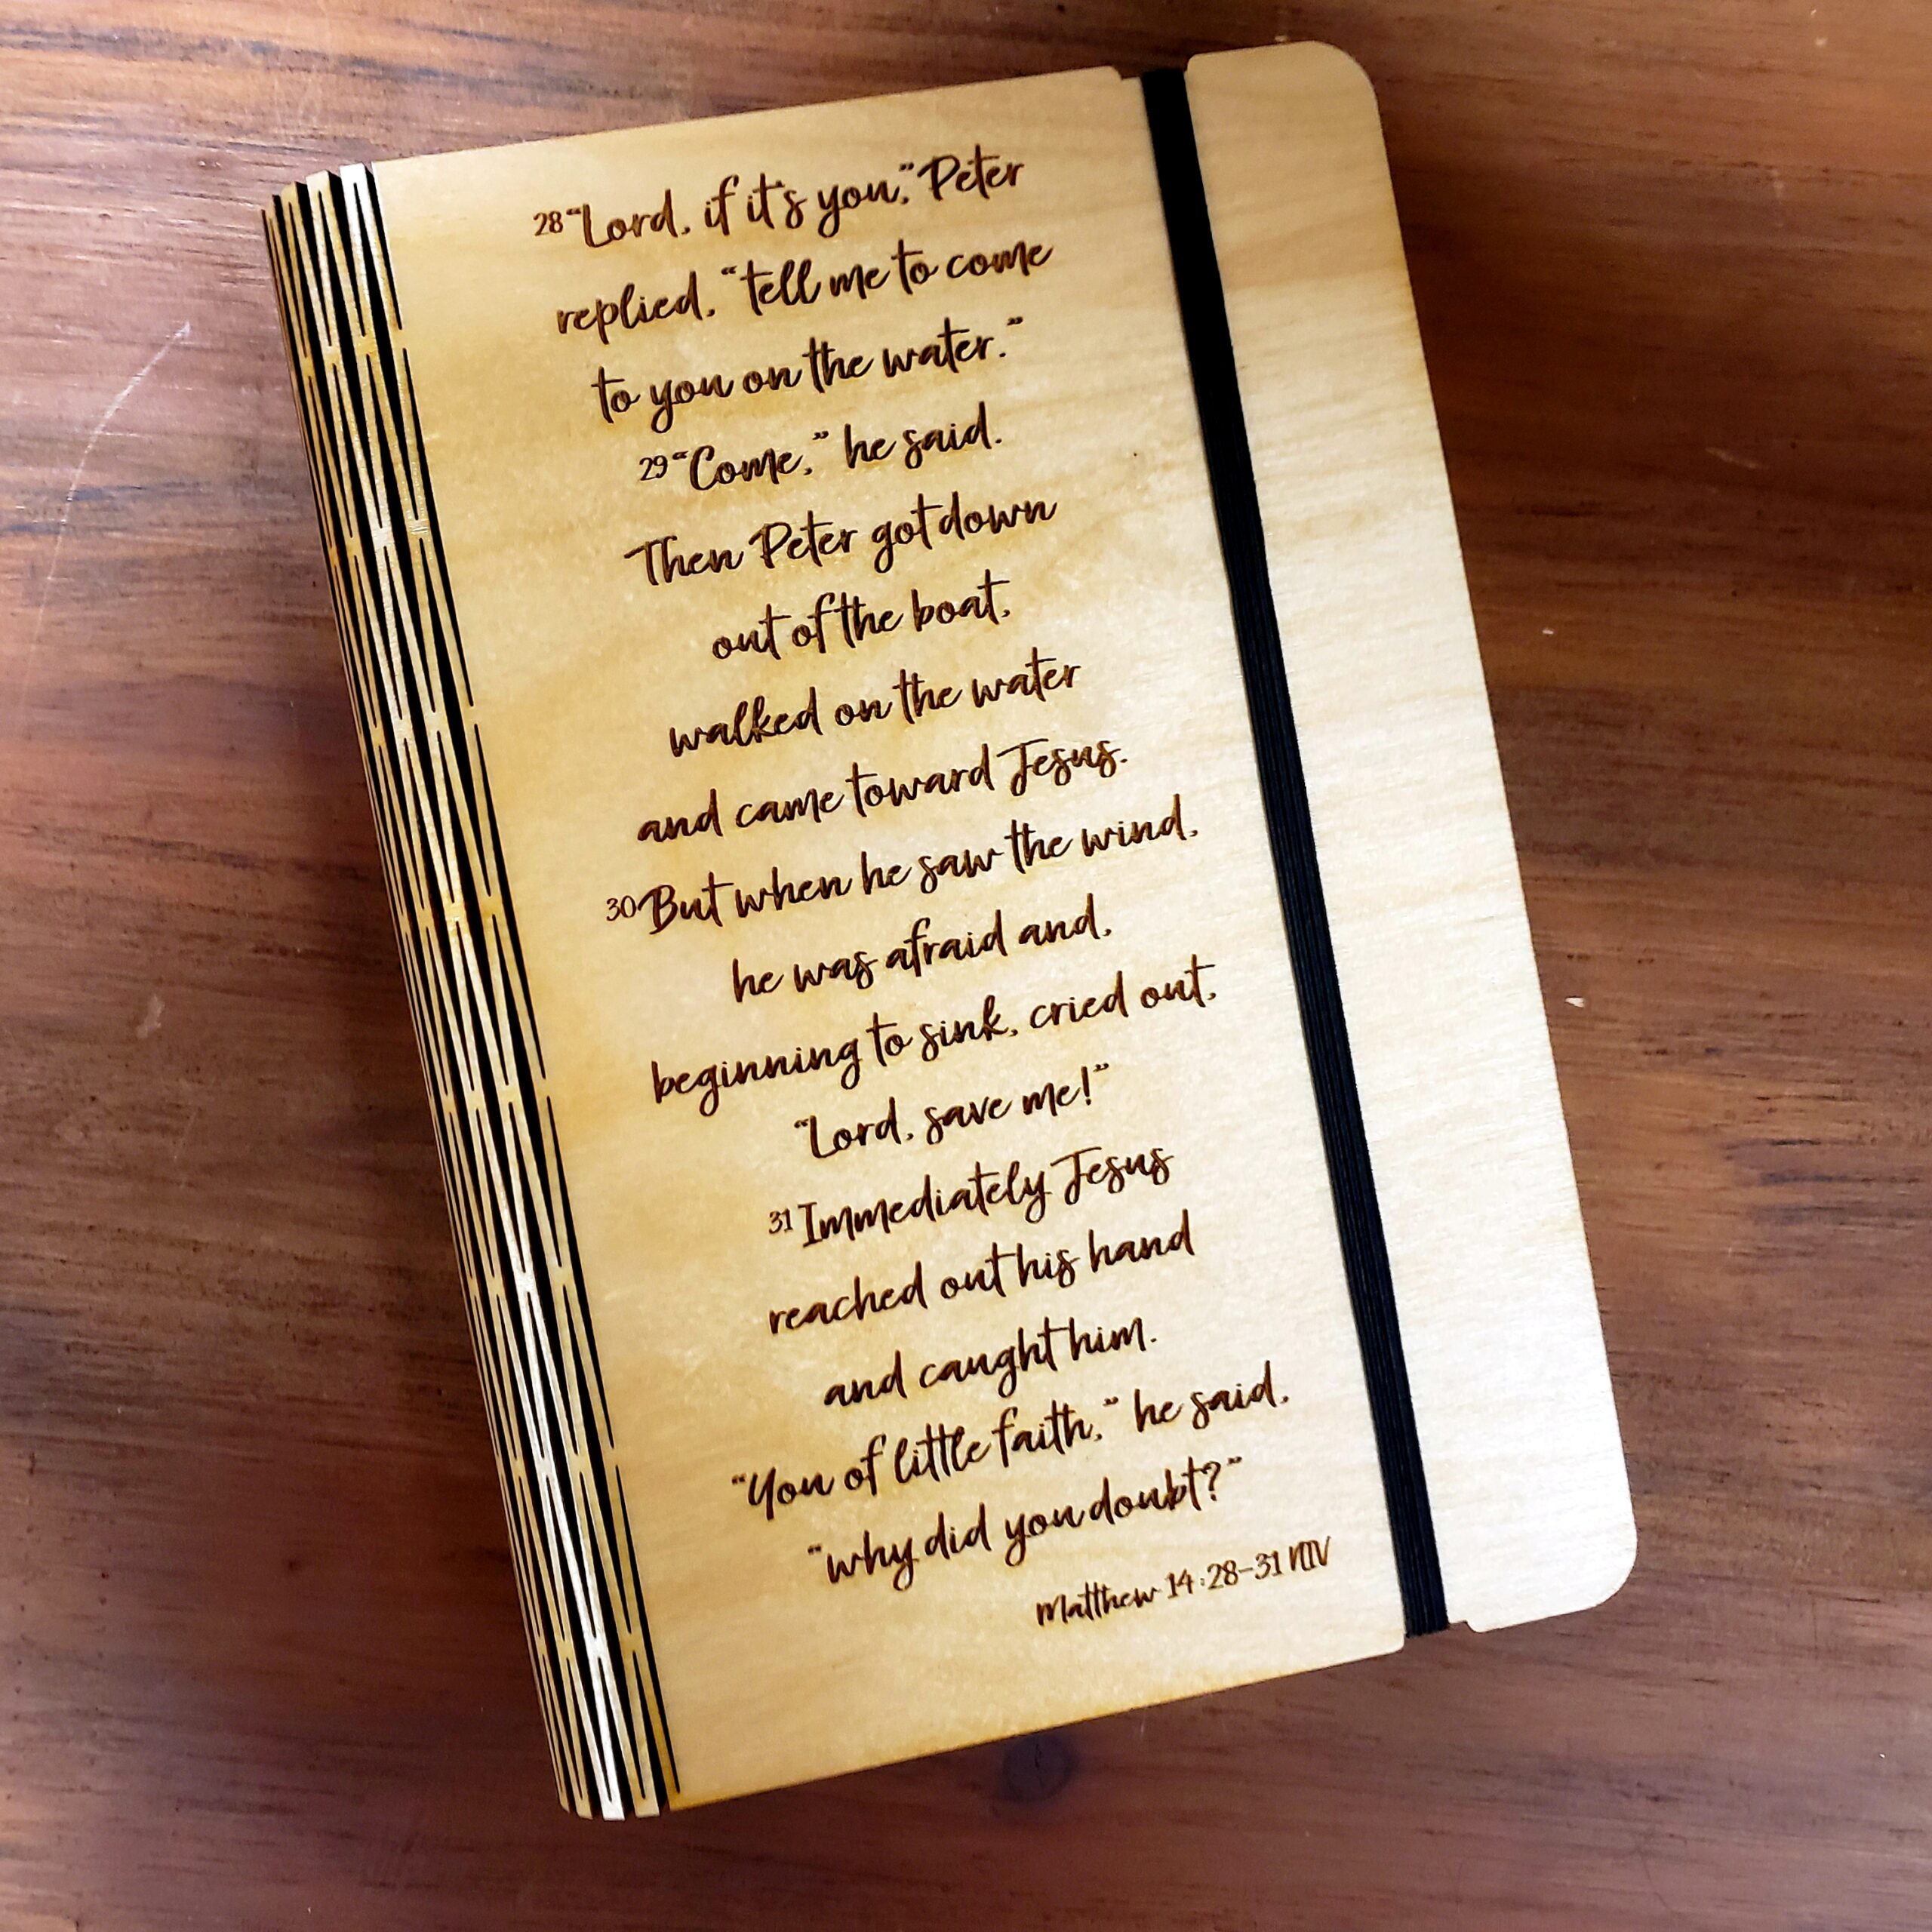 28 “Lord, if it's you,” Peter
replied, “tell me to come
to you on the water.”
29 “Come,” he said.
Then Peter got down
out of the boat,
walked on the water
and came toward Jesus.
30 But when he saw the wind,
he was afraid and,
beginning to sink, cried out,
“Lord, save me!”
31 Immediately Jesus
reached out his hand
and caught him.
“You of little faith,” he said,
“why did you doubt?”
Matthew 14:28-31 NIV